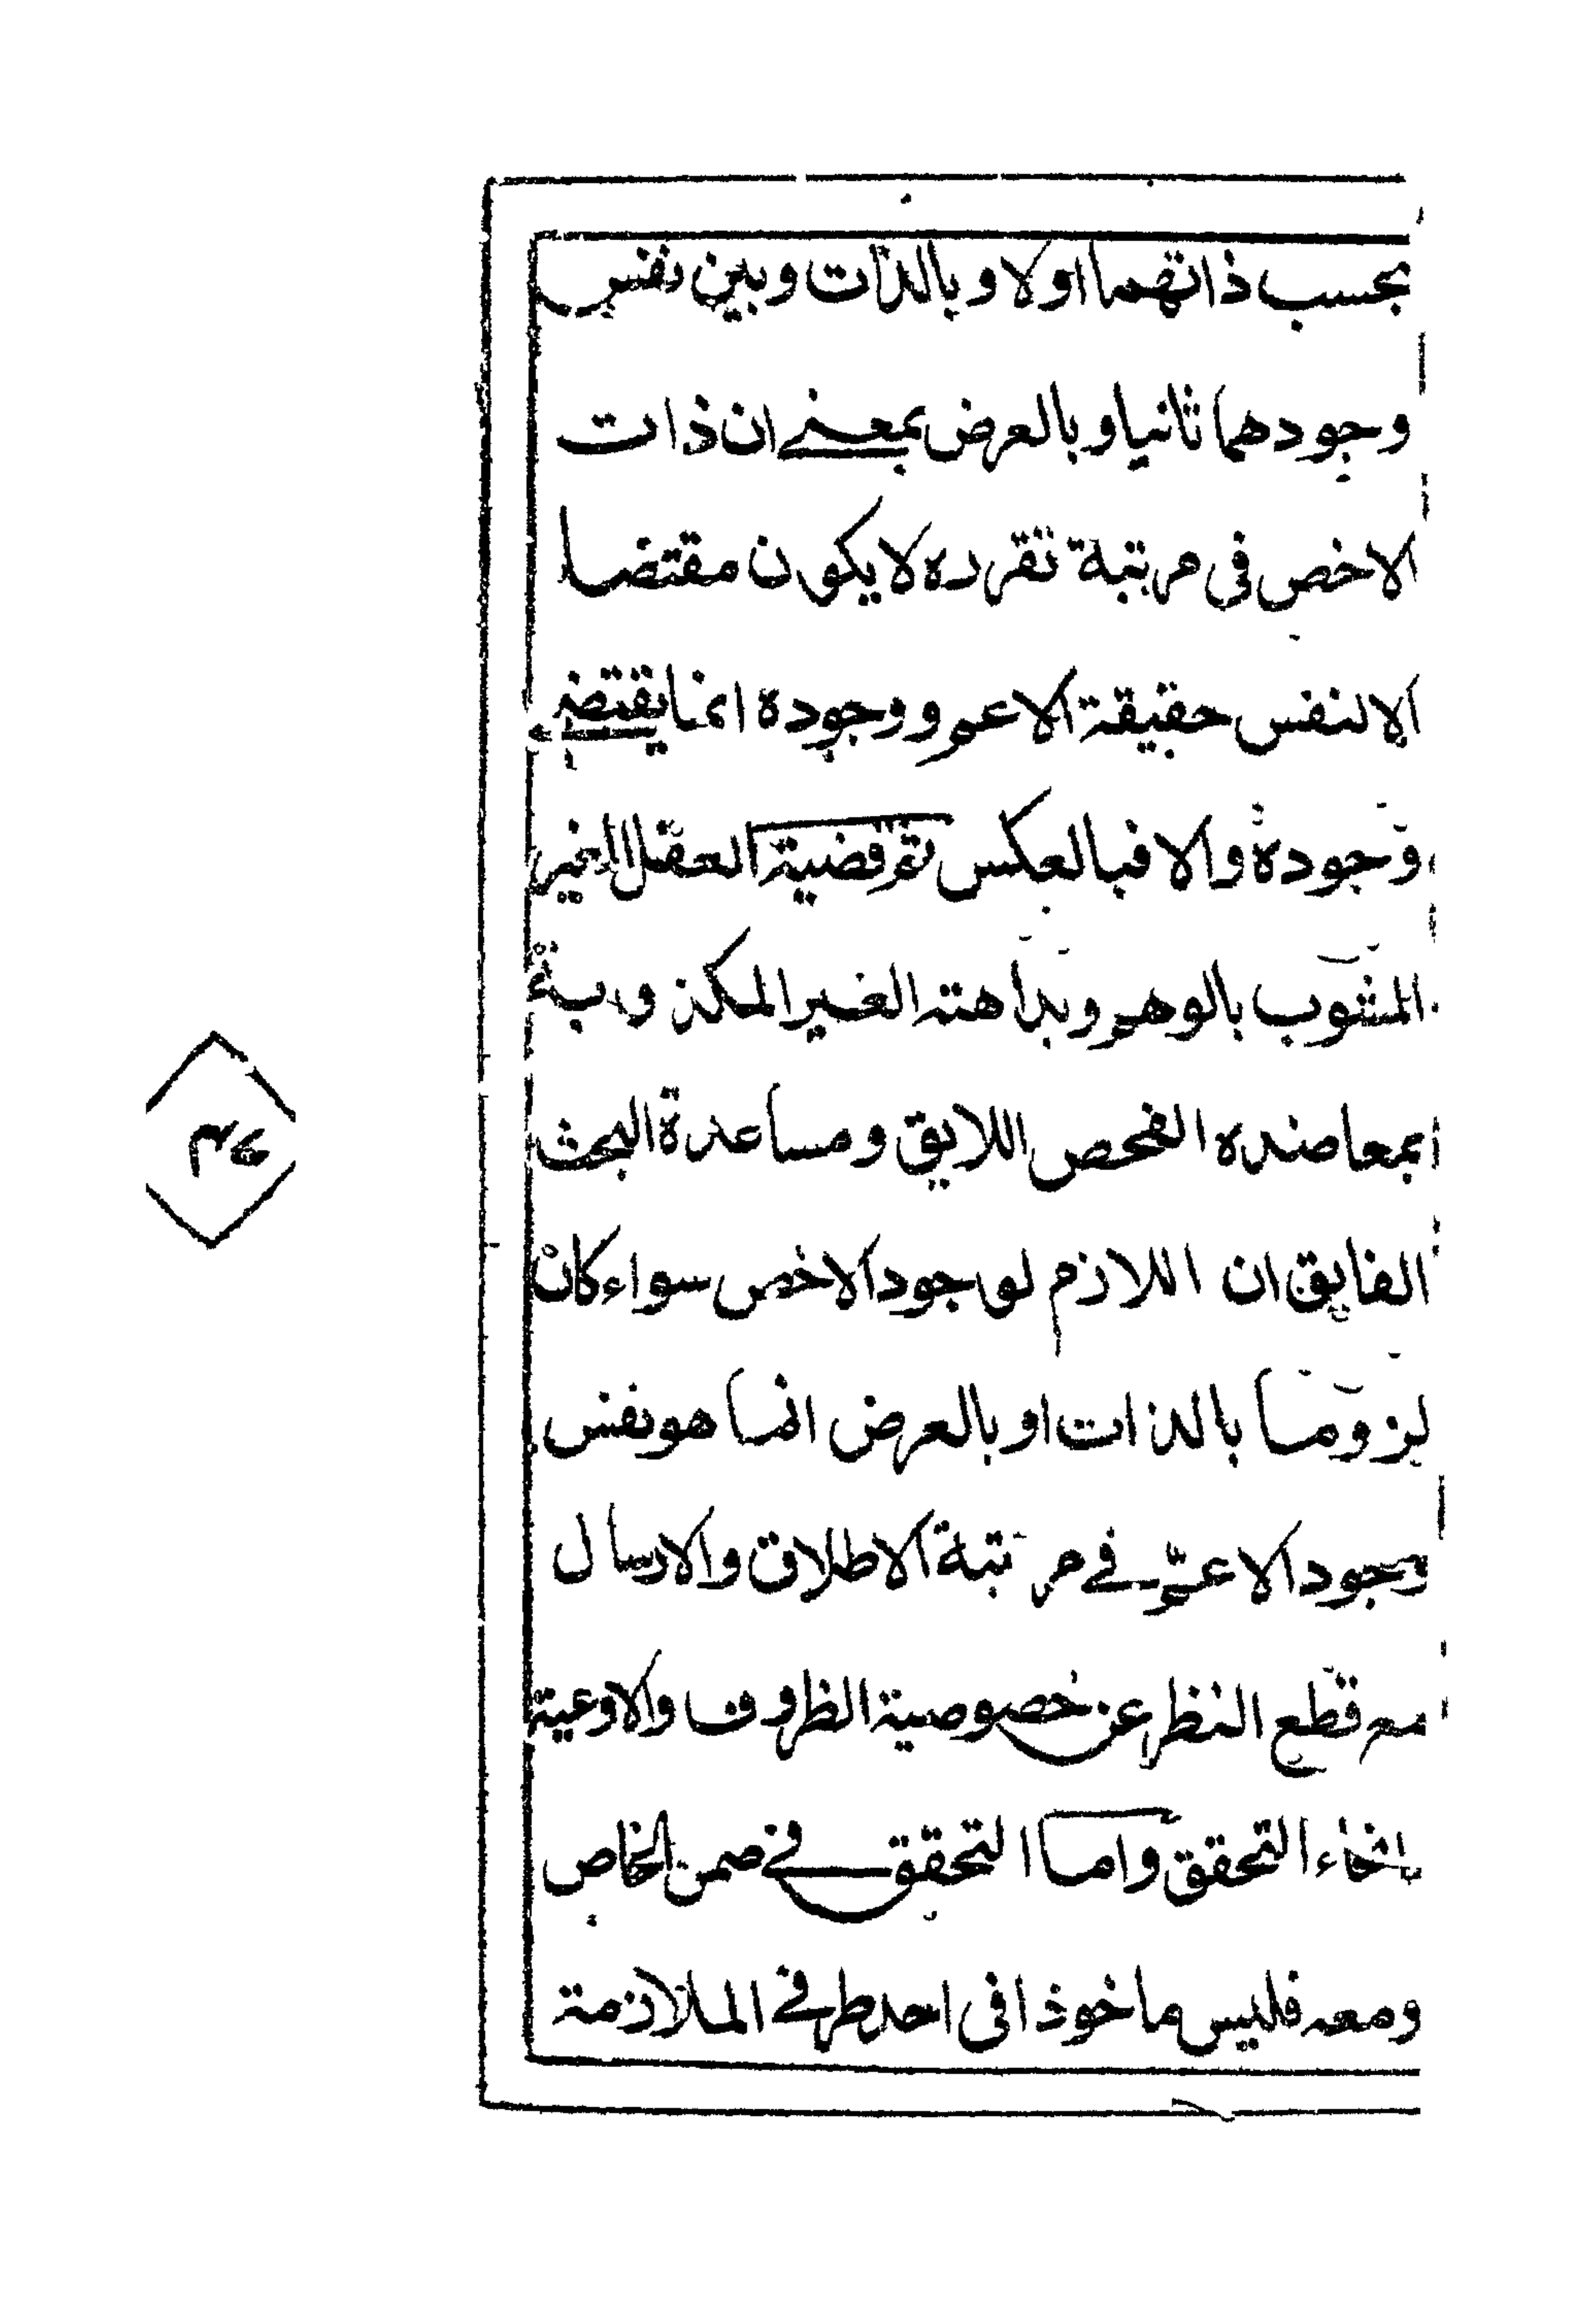 بحسب ذاتهما اولا و بالذات و بين نفس
وجودهما ثانيا و بالعرض بمعنى ان ذات
الاخص فى مرتبة تقرره لا يكون مقتضيا
الا لنفس حقيقة الاعم و وجوده انما يقتضى
وجوده والا فبالعكس ثم قضية العقل الغير
المشوب بالوهم و بداهته الغير المكذوبة
بمعاضده الفحص اللايق و مساعدة البحث
الفايق ان اللازم لوجود الاخص سواء كان
لزوما بالذات او بالعرض انما هو نفس
وجود الاعمّ فى مرتبة الاطلاق والارسال
مع قطع النظر عن خصوصية الظروف والاوعية
انحاء التحقق واما التحقق فى ضمن الخاص
ومعه فليس ماخوذا فى احد طرفى الملازمة